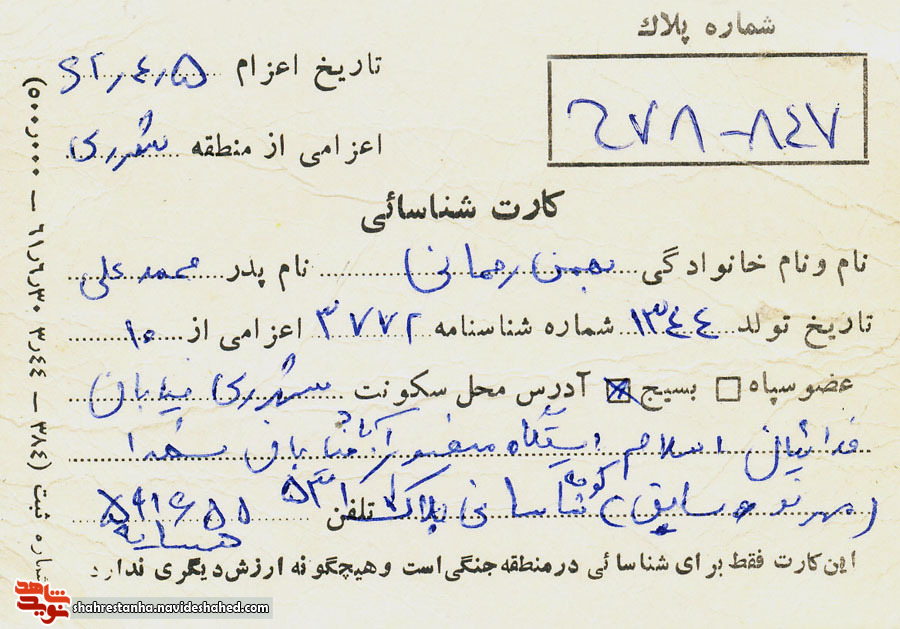 شماره پلاك
۸۴۷-۶۷۸
تاریخ اعزام ۶۲٫۴٫۵
اعزامی از منطقه شهرری
کارت شناسائی
نام ونام خانوادگی بهمن رحمانی نام پدر محمد علی
تاریخ تولد ۱۳۴۴ شماره شناسنامه ۳۷۷۲ اعزامی از ۱۰
عضو سپاه بسیج آدرس محل سکونت شهرری خیابان
فدائیان اسلام ایستگاه منصور آباد خیابان شهدا
(مهرنو سابق) کوچه پلاک تلفن
همسایه
این کارت فقط برای شناسائی درمنطقه جنگی است وهیچگونه ارزش دیگری ندارد
شماره ثبت (۳۸۴ – ۳٫۴۴ ۶۱٫۶٫۳۰ – ۵۰۰٫۰۰۰)
نوید شاهد
shahrestanha.navideshahed.com